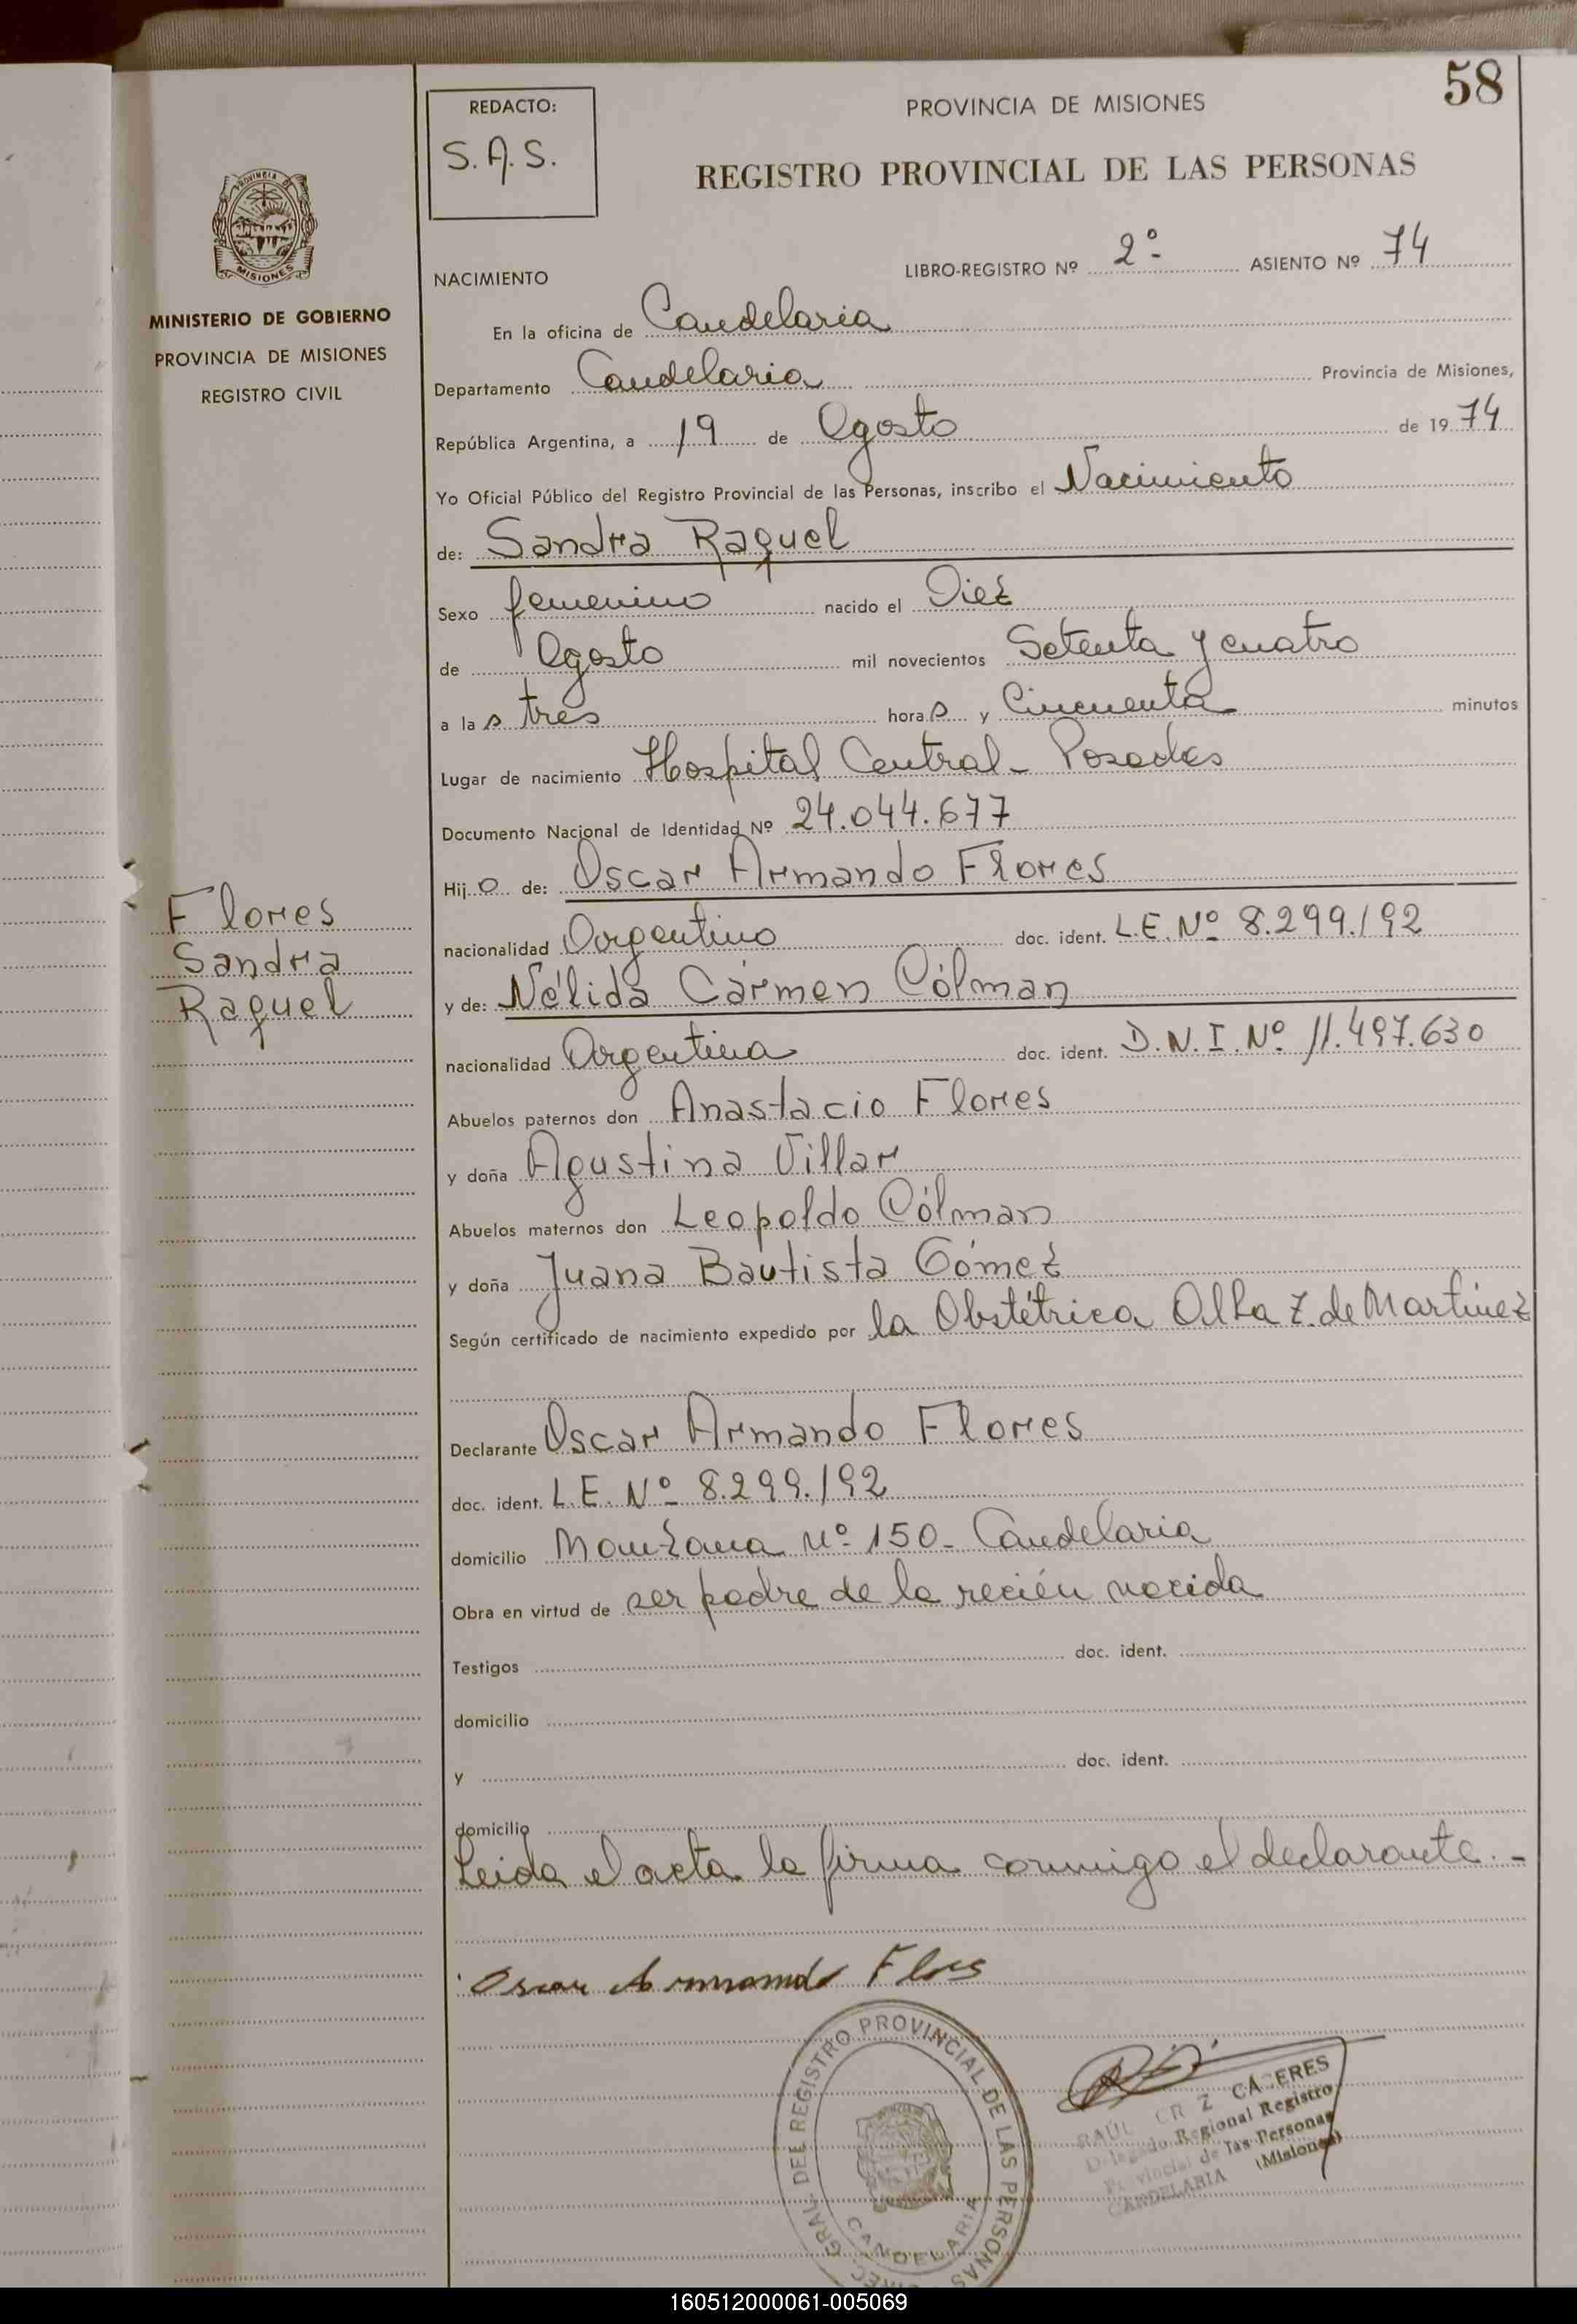 58
REDACTO:
S.A.S.
PROVINCIA DE MISIONES
REGISTRO PROVINCIAL DE LAS PERSONAS
PROVINCIA DE
MISIONES
MINISTERIO DE GOBIERNO
PROVINCIA DE MISIONES
REGISTRO CIVIL
NACIMIENTO LIBRO-REGISTRO Nº 2º- ASIENTO Nº 74
En la oficina de Candelaria
Departamento Candelaria Provincia de Misiones,
República Argentina, a 19 de Agosto de 1974
Yo Oficial Público del Registro Provincial de las Personas, inscribo el Nacimiento
de: Sandra Raquel
Sexo femenino nacido el Diez
de Agosto mil novecientos Setenta y cuatro
a las tres horas y Cincuenta minutos
Lugar de nacimiento Hospital Central - Posadas
Documento Nacional de Identidad Nº 24.044.677
Hijo de: Oscar Armando Flores
nacionalidad Argentino doc. ident. L.E. Nº 8.299.192
y de: Nélida Cármen Cólman
nacionalidad Argentina doc. ident. D.N.I. Nº 11.497.630
Abuelos paternos don Anastacio Flores
y doña Agustina Villar
Abuelos maternos don Leopoldo Cólman
y doña Juana Bautista Gómez
Según certificado de nacimiento expedido por la Obstétrica Alba Z. de Martinez
Declarante Oscar Armando Flores
doc. ident. L.E. Nº 8.299.192
domicilio Manzana Nº 150 - Candelaria
Obra en virtud de ser padre de la recién nacida
Testigos doc. ident.
domicilio
y doc. ident.
domicilio
Leida el acta la firma conmigo el declarante.-
Flores
Sandra
Raquel
Oscar Armando Flores
GRAL. DEL REGISTRO PROVINCIAL DE LAS PERSONAS
CANDELARIA
RAÚL CR Z CACERES
Delegado Regional Registro
Provincial de las Personas
CANDELARIA (Misiones)
160512000061-005069